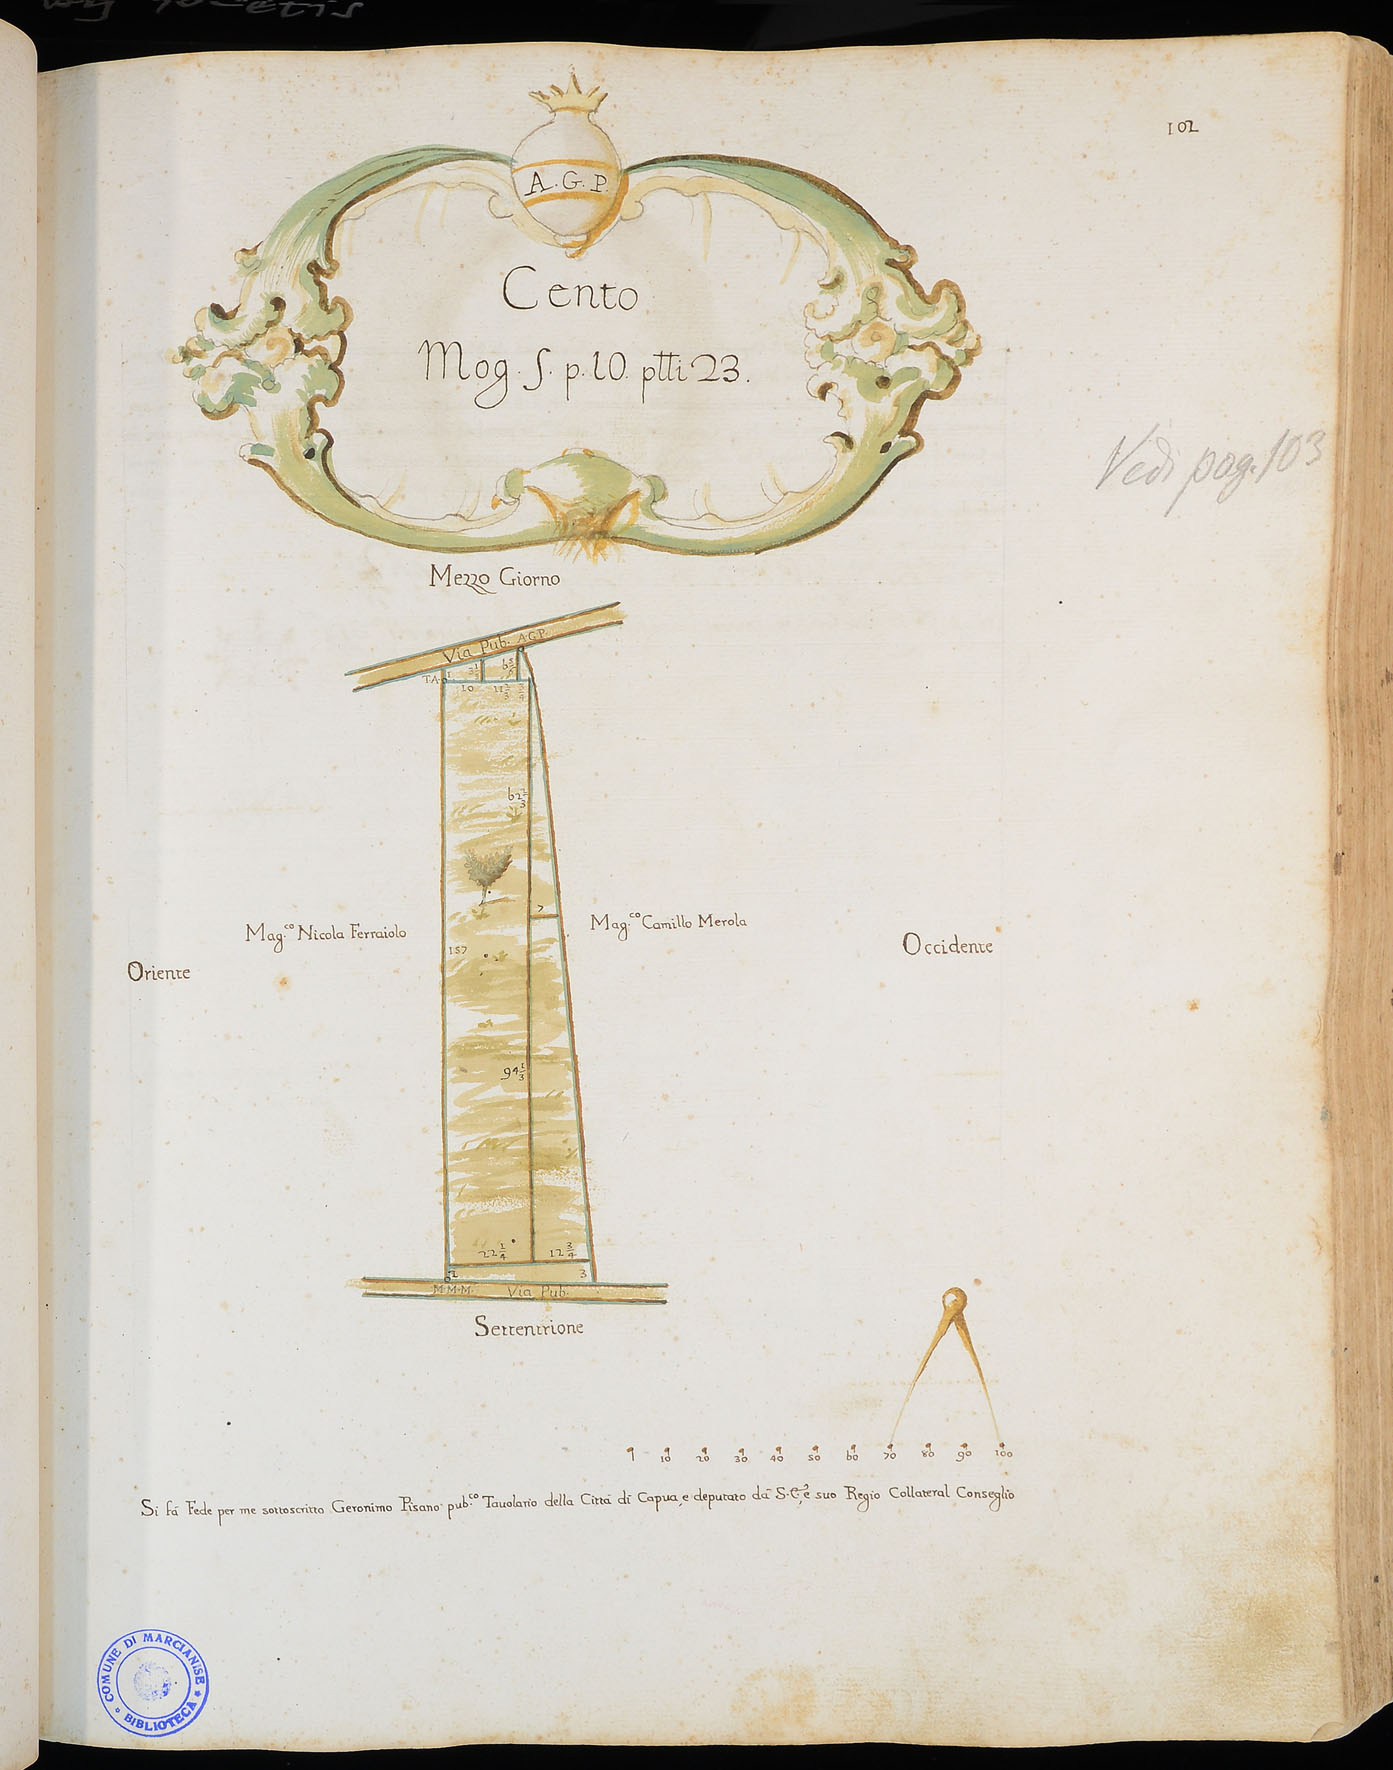 102
A. G. P.
Cento
Mog. 5. p. 10. ptti 23.
Vedi pag. 103
Mezzo Giorno
Via Pub. A.G.P.
T.A. 1
10 11 1/3
62 2/3
7
Mag.co Nicola Ferraiolo
Mag.co Camillo Merola
157
Oriente
Occidente
94 1/3
22 1/4 12 3/4
2 3
M.M.M. Via Pub.
Settentrione
10 20 30 40 50 60 70 80 90 100
Si fá Fede per me sottoscritto Geronimo Pisano pub.co Tauolario della Cittá di Capua, e deputato dá S.E., e suo Regio Collateral Conseglio
COMUNE DI MARCIANISE
BIBLIOTECA